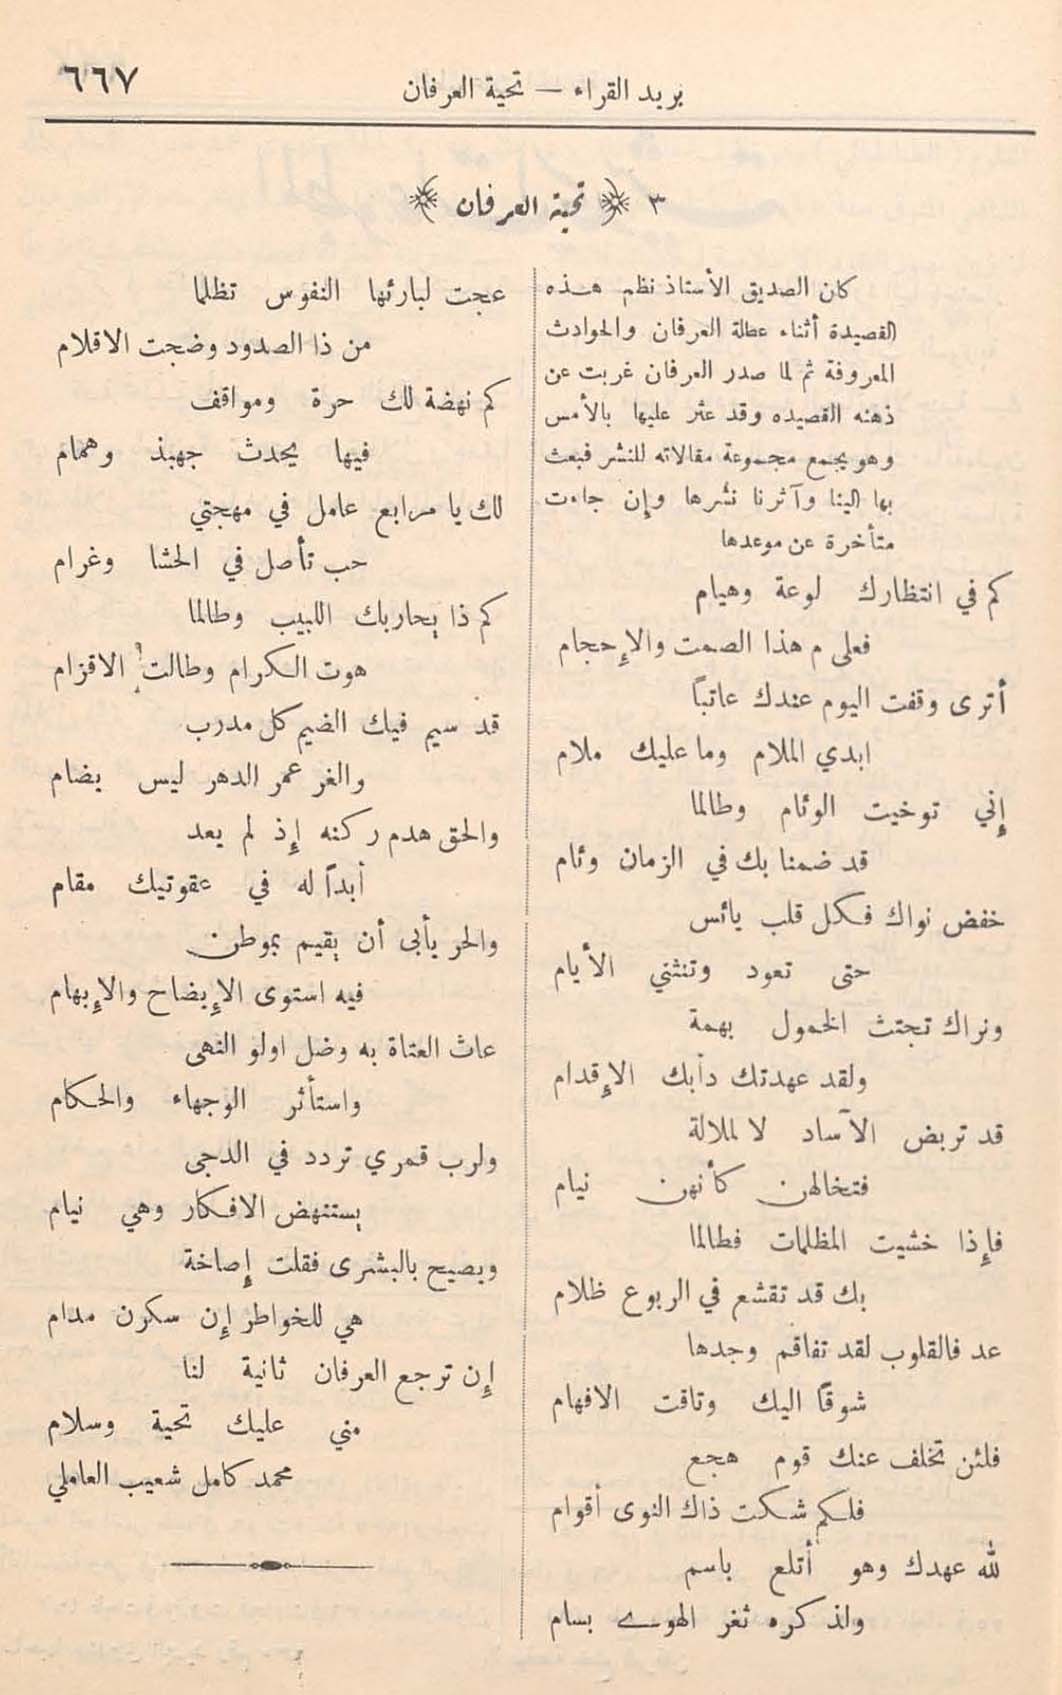 بريد القراء — تحية العرفان
٦٦٧
٣ ﴿ تحية العرفان ﴾
كان الصديق الأستاذ نظم هذه
القصيدة أثناء عطلة العرفان والحوادث
المعروفة ثم لما صدر العرفان غربت عن
ذهنه القصيده وقد عثر عليها بالأمس
وهو يجمع مجموعة مقالاته للنشر فبعث
بها الينا وآثرنا نشرها وإن جاءت
متأخرة عن موعدها
كم في انتظارك لوعة وهيام
فعلى م هذا الصمت والإحجام
أترى وقفت اليوم عندك عاتباً
ابدي الملام وما عليك ملام
إني توخيت الوئام وطالما
قد ضمنا بك في الزمان وئام
خفض نواك فكل قلب يائس
حتى تعود وتنثني الأيام
ونراك تجتث الخمول بهمة
ولقد عهدتك دأبك الإقدام
قد تربض الآساد لا لملالة
فتخالهن كأنهن نيام
فإذا خشيت المظلمات فطالما
بك قد تقشع في الربوع ظلام
عد فالقلوب لقد تفاقم وجدها
شوقاً اليك وتاقت الافهام
فلئن تخلف عنك قوم هجع
فلكم شكت ذاك النوى أقوام
لله عهدك وهو أتلع باسم
ولذكره ثغر الهوى بسام
عجت لبارئها النفوس تظلما
من ذا الصدود وضجت الاقلام
كم نهضة لك حرة ومواقف
فيها يحدث جهبذ وهمام
لك يا مرابع عامل في مهجتي
حب تأصل في الحشا وغرام
كم ذا يحاربك اللبيب وطالما
هوت الكرام وطالت الاقزام
قد سيم فيك الضيم كل مدرب
والغر عمر الدهر ليس يضام
والحق هدم ركنه إذ لم يعد
أبداً له في عقوتيك مقام
والحر يأبى أن يقيم بموطن
فيه استوى الإيضاح والإبهام
عاث العتاة به وضل اولو النهى
واستأثر الوجهاء والحكام
ولرب قمري تردد في الدجى
يستنهض الافكار وهي نيام
ويصيح بالبشرى فقلت إصاخة
هي للخواطر إن سكرن مدام
إن ترجع العرفان ثانية لنا
مني عليك تحية وسلام
محمد كامل شعيب العاملي